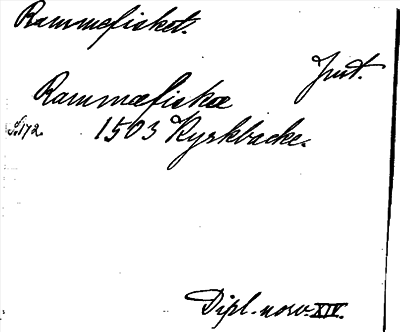 Rammefisket.
Just.
Rammæfiskæ
S. 172. 1503 Kyrkbacke.
Dipl. norv. XIV.